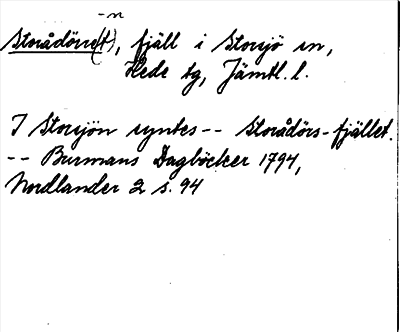 -n
Storådörre(t), fjäll i Storsjö sn,
Hede tg, Jämtl. l.
I Storsjön syntes -- Storådörs-fjället.
-- Burmans Dagböcker 1794,
Nordlander 2 s. 94